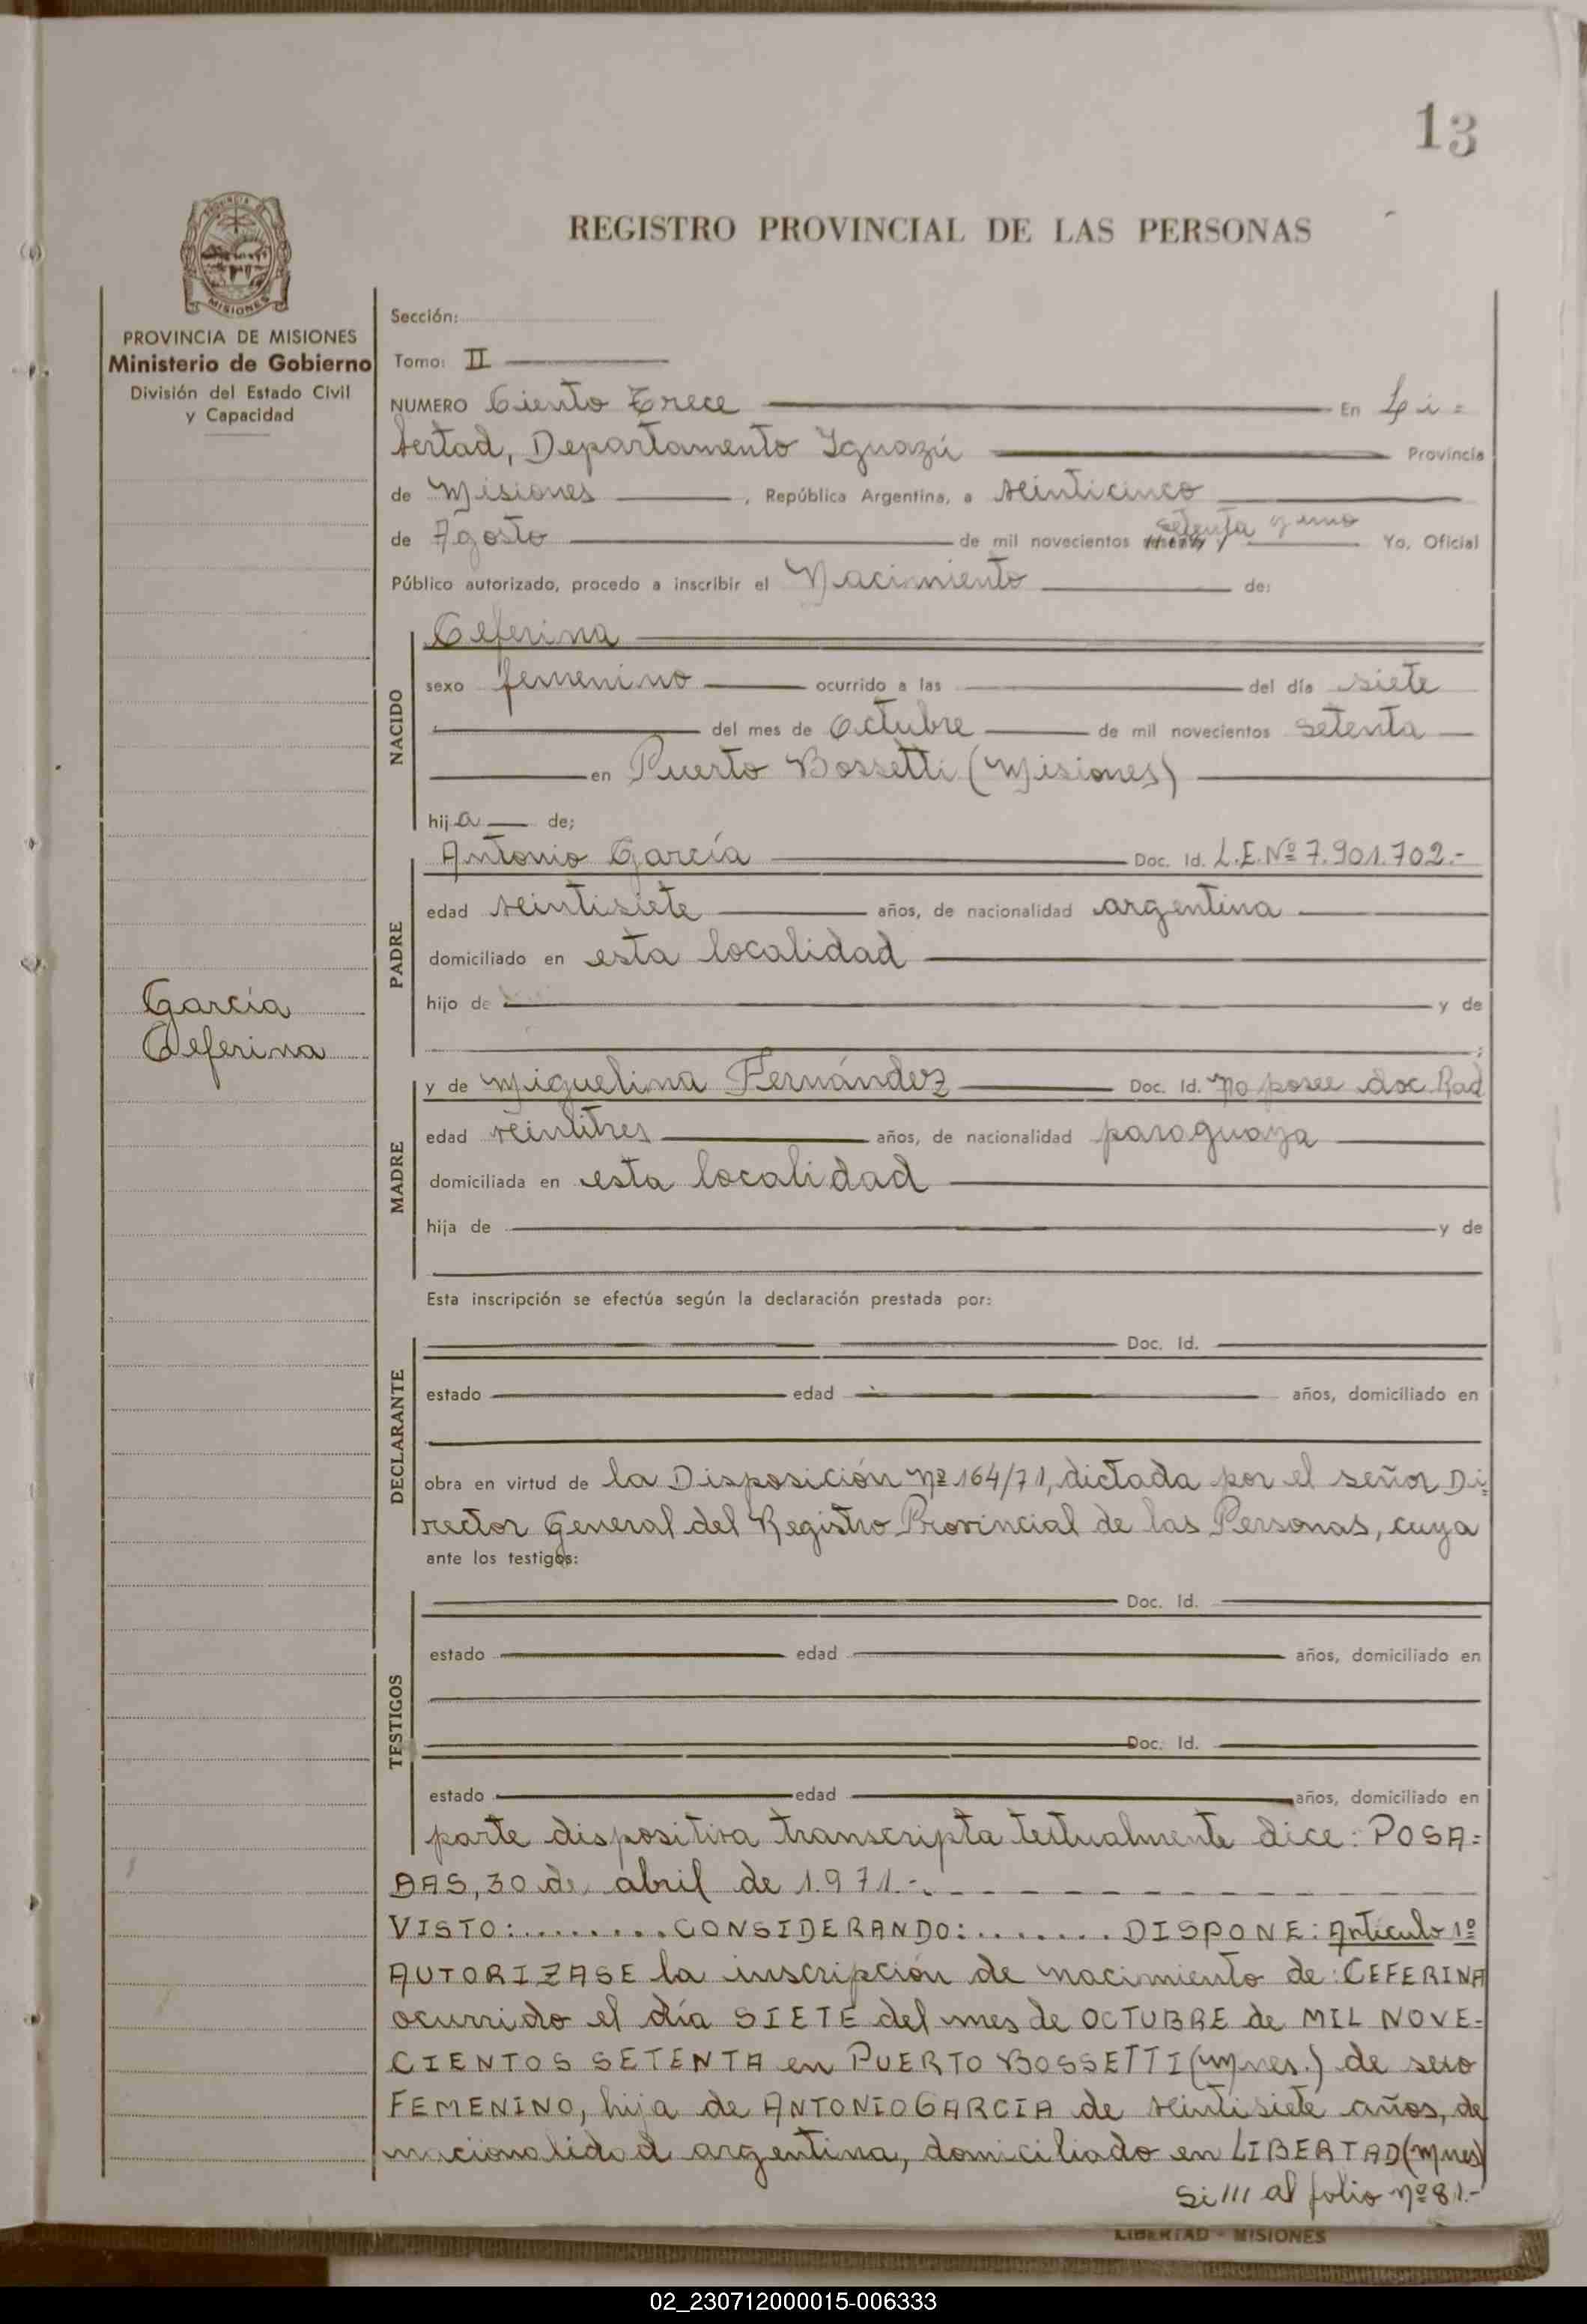 13
REGISTRO PROVINCIAL DE LAS PERSONAS
MISIONES
PROVINCIA DE MISIONES
Ministerio de Gobierno
División del Estado Civil
y Capacidad
García
Ceferina
Sección:
Tomo: II
NUMERO Ciento Trece En Li=
bertad, Departamento Iguazú Provincia
de Misiones, República Argentina, a veinticinco
de Agosto de mil novecientos setenta y uno Yo, Oficial
Público autorizado, procedo a inscribir el Nacimiento de:
NACIDO
Ceferina
sexo femenino ocurrido a las del día siete
del mes de Octubre de mil novecientos setenta
en Puerto Bossetti (Misiones)
hija de;
PADRE
Antonio García Doc. Id. L.E.Nº 7.901.702.-
edad veintisiete años, de nacionalidad argentina
domiciliado en esta localidad
hijo de y de
MADRE
y de Miguelina Fernández Doc. Id. no posee doc. Rad
edad veintitres años, de nacionalidad paraguaya
domiciliada en esta localidad
hija de y de
Esta inscripción se efectúa según la declaración prestada por:
DECLARANTE
Doc. Id.
estado edad años, domiciliado en
obra en virtud de la Disposición nº 164/71, dictada por el señor Di=
rector General del Registro Provincial de las Personas, cuya
ante los testigos:
TESTIGOS
Doc. Id.
estado edad años, domiciliado en
Doc. Id.
estado edad años, domiciliado en
parte dispositiva transcripta textualmente dice: POSA=
DAS, 30 de abril de 1.971.-
VISTO:........CONSIDERANDO:.......DISPONE: Artículo 1º
AUTORIZASE la inscripción de nacimiento de: CEFERINA
ocurrido el día SIETE del mes de OCTUBRE de MIL NOVE=
CIENTOS SETENTA en PUERTO BOSSETTI (Mnes.) de sexo
FEMENINO, hija de ANTONIO GARCIA de veintisiete años, de
nacionalidad argentina, domiciliado en LIBERTAD (Mnes)
Si/// al folio nº 81.-
LIBERTAD - MISIONES
02_230712000015-006333